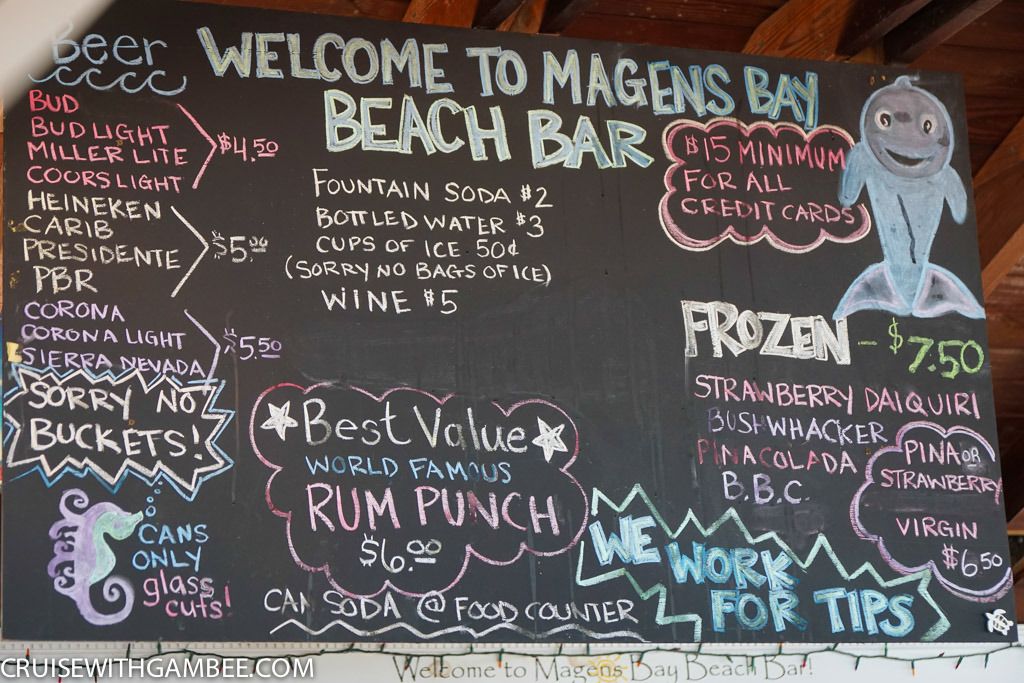 Beer
BUD
BUD LIGHT
MILLER LITE
COORS LIGHT
$4.50
HEINEKEN
CARIB
PRESIDENTE
PBR
$5.00
CORONA
CORONA LIGHT
SIERRA NEVADA
$5.50
SORRY NO
BUCKETS!
CANS
ONLY
glass
cuts!
WELCOME TO MAGENS BAY
BEACH BAR
FOUNTAIN SODA $2
BOTTLED WATER $3
CUPS OF ICE 50¢
(SORRY NO BAGS OF ICE)
WINE $5
Best Value
WORLD FAMOUS
RUM PUNCH
$6.00
CAN SODA @ FOOD COUNTER
$15 MINIMUM
FOR ALL
CREDIT CARDS
FROZEN - $7.50
STRAWBERRY DAIQUIRI
BUSHWHACKER
PINA COLADA
B.B.C.
PINA OR
STRAWBERRY
VIRGIN
$6.50
WE WORK
FOR TIPS
CRUISEWITHGAMBEE.COM
Welcome to Magens Bay Beach Bar!